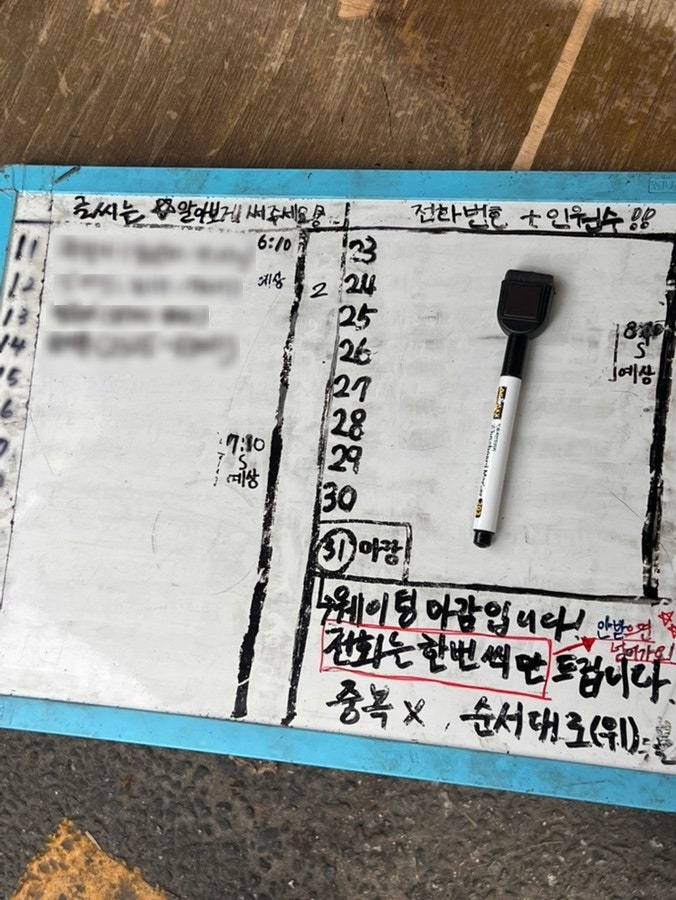 글씨는 알아보게 써주세요!
전화번호 + 인원수!!
11
6:10
12
예상
13
14
15
7:10
S
예상
2
23
24
25
26
27
28
29
30
31 마감
8:
S
예상
↳웨이팅 마감입니다!
전화는 한번씩만 드립니다.
안받으면
넘어가요!
중복 X 순서대로(위)